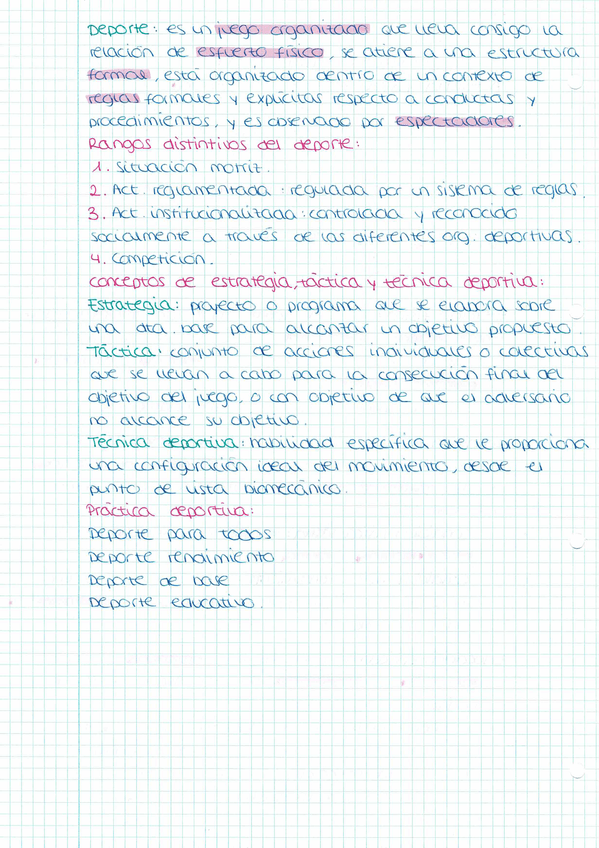 Deporte: es un juego organizado que lleva consigo la
relación de esfuerzo físico, se atiene a una estructura
formal, está organizado dentro de un contexto de
reglas formales y explícitas respecto a conductas y
procedimientos, y es observado por espectadores.
Rangos distintivos del deporte:
1. Situación motriz.
2. Act. reglamentada: regulada por un sistema de reglas.
3. Act. institucionalizada: controlada y reconocido
socialmente a través de las diferentes org. deportivas.
4. Competición.
Conceptos de estrategia, táctica y técnica deportiva:
Estrategia: proyecto o programa que se elabora sobre
una dta. base para alcanzar un objetivo propuesto.
Táctica: conjunto de acciones individuales o colectivas
que se llevan a cabo para la consecución final del
objetivo del juego, o con objetivo de que el adversario
no alcance su objetivo.
Técnica deportiva: habilidad específica que le proporciona
una configuración ideal del movimiento, desde el
punto de vista biomecánico.
Práctica deportiva:
Deporte para todos
Deporte rendimiento
Deporte de base
Deporte educativo.